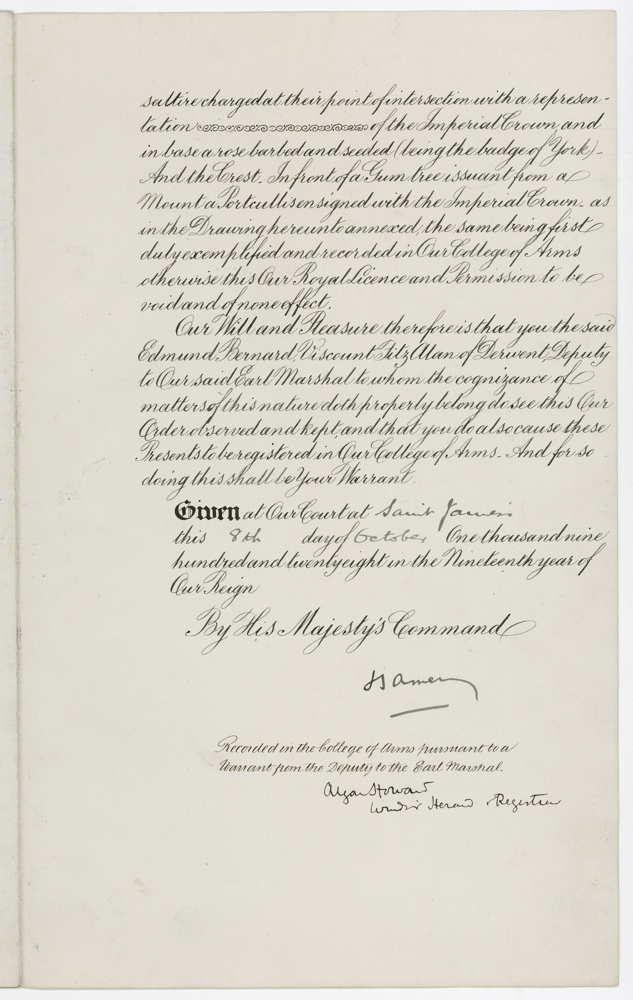 saltire charged at their point of intersection with a represen-
tation of the Imperial Crown, and
in base a rose barbed and seeded (being the badge of York) -
And the Crest. In front of a Gum tree issuant from a
Mount a Portcullis ensigned with the Imperial Crown - as
in the Drawing hereunto annexed, the same being first
duly exemplified and recorded in Our College of Arms
otherwise this Our Royal Licence and Permission to be
void and of none effect.
Our Will and Pleasure therefore is that you the said
Edmund Bernard, Viscount FitzAlan of Derwent, Deputy
to Our said Earl Marshal to whom the cognizance of
matters of this nature doth properly belong do see this Our
Order observed and kept, and that you do also cause these
Presents to be registered in Our College of Arms - And for so
doing this shall be Your Warrant.
Given at Our Court at Saint James's
this 8th day of October One thousand nine
hundred and twenty eight in the Nineteenth year of
Our Reign
By His Majesty's Command
Recorded in the College of Arms pursuant to a
Warrant from the Deputy to the Earl Marshal.
Algar Howard
Windsor Herald & Registrar